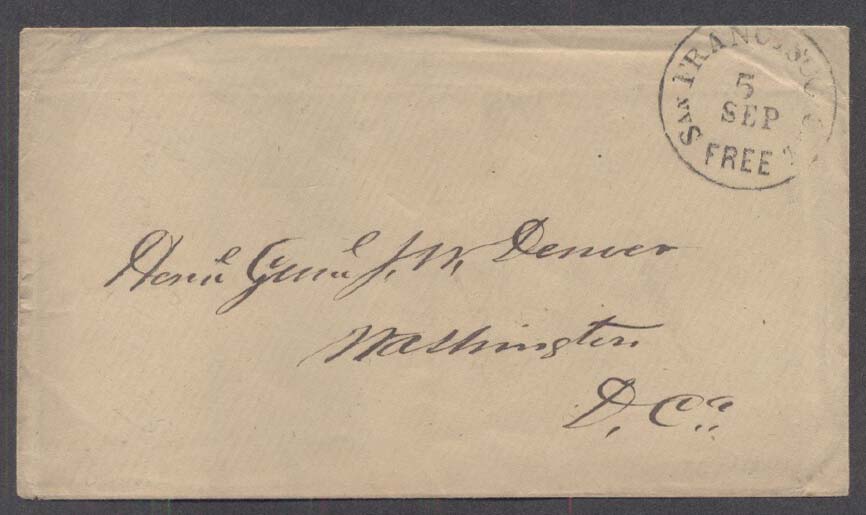 SAN FRANCISCO
5
SEP
FREE
Honl Genl J. W. Denver
Washington
D. Ca